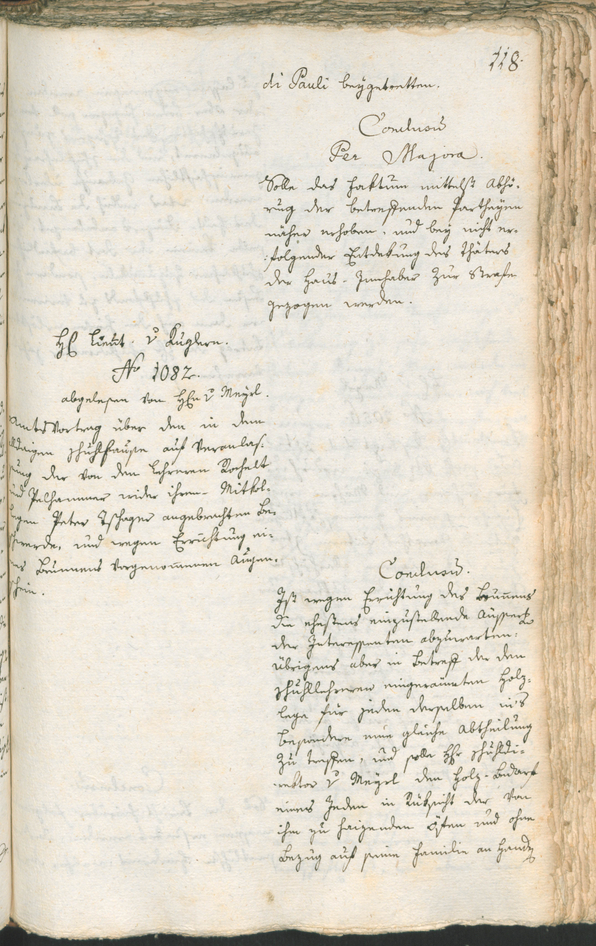 118.
di Pauli beygetretten.
Conclusum
Per Majora.
Solle das Faktum mittelst Abhö-
rung der betreffenden Partheyen
näher erhoben, und bey nicht er-
folgender Entdekung des Thäters
der Haus-Innhaber zur Strafe
gezogen werden.
H Lieut. v Kuglern.
No 1082.
abgelesen von Hrn v Meysl.
Amtsvortrag über den in dem
Schulhause auf Veranlas-
sung der von den Lehrern Rochelt
und Pelhammer wider ihren Mitkol-
legen Peter Tschager angebrachten Be-
schwerde, und wegen Errichtung ei-
nes Brunnens vorgenommenen Augen-
schein.
Conclusum.
Ist wegen Errichtung des Brunnens
die ehestens einzustellende Äusserung
der Interessenten abzuwarten:
übrigens aber in Betreff der den
Schullehrern eingeraumten Holz-
lege für jeden derselben ins
besondere eine gleiche Abtheilung
zu treffen, und solle Hr Schuldi-
rektor v Meysl den Holz-Bedarf
eines Jeden in Rüksicht der von
ihm zu haizenden Öfen und ohne
Bezug auf seine Familie an Handen